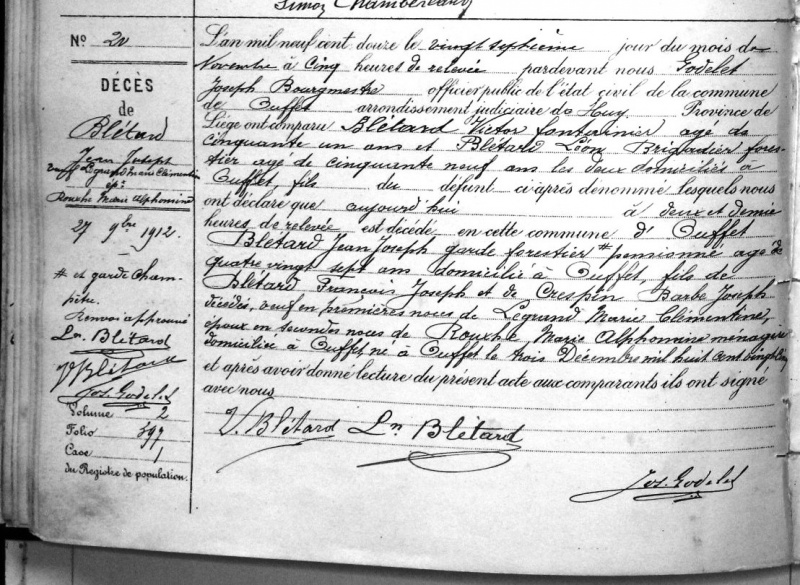 Simon Chambereau
N° 20
DÉCÈS
de
Blétard
Jean Joseph
veuf Legrand Marie Clémentine
ép:
Rouxhe Marie Alphonsine
27 9bre 1912.
# et garde cham-
pêtre.
Renvoi approuvé
Ln. Blétard
V Blétard
Jos. Godelet
Volume 2
Folio 397
Case 1
du Registre de population.
L'an mil neuf cent douze le vingt septième jour du mois de
Novembre à Cinq heures de relevée pardevant nous Godelet
Joseph Bourgmestre officier public de l'état civil de la commune
de Ouffet arrondissement judiciaire de Huy Province de
Liége ont comparu Blétard Victor fontainier agé de
cinquante un ans et Blétard Léon Brigadier fores-
tier agé de cinquante neuf ans les deux domiciliés à
Ouffet, fils du défunt ci après dénommé lesquels nous
ont déclaré que aujourd'hui à deux et demie
heures de relevée est décédé en cette commune d' Ouffet
Blétard Jean Joseph garde forestier # pensionné agé de
quatre vingt sept ans domicilié à Ouffet, fils de
Blétard François Joseph et de Crespin Barbe Joseph
décédés, veuf en premières noces de Legrand Marie Clémentine,
époux en secondes noces de Rouxhe, Marie Alphonsine ménagère
domiciliée à Ouffet, né à Ouffet le trois Décembre mil huit cent vingt cinq
et après avoir donné lecture du présent acte aux comparants ils ont signé
avec nous
V. Blétard Ln Blétard
Jos. Godelet